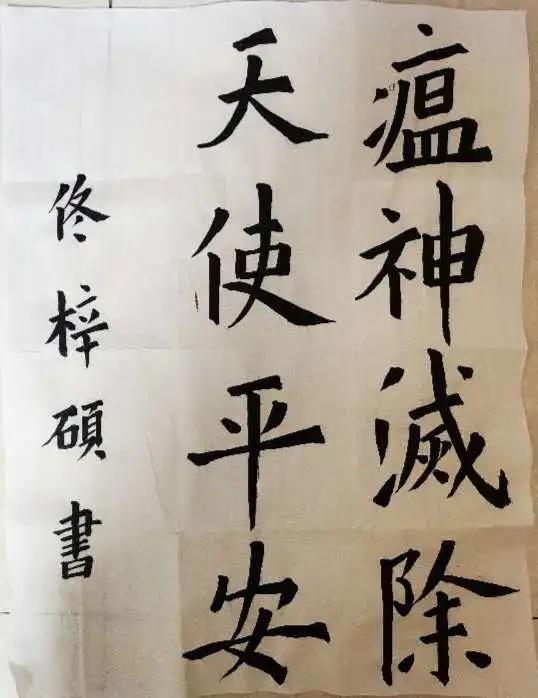 瘟神滅除
天使平安
佟梓碩書